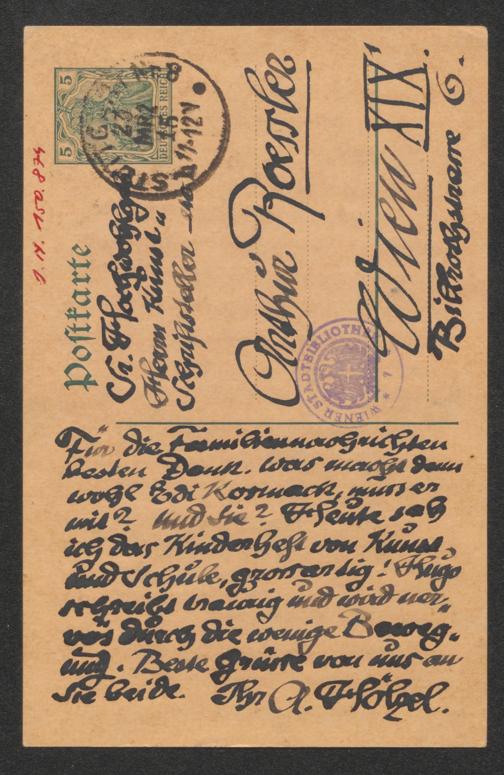 Postkarte
5
5
DEUTSCHES REICH
STUTTGART No 8
MRZ
15
11-12 V
J. N. 150.874
Sr. Hochwohlgeb.
Herrn Kunst-
Schriftsteller
Arthur Roessler
Wien XIX
Billrothstrasse 6.
WIENER STADTBIBLIOTHEK
Für die Familiennachrichten
besten Dank. was macht denn
wohl Edi Kosmack, muss er
mit? und Sie? Heute sah
ich das Kinderheft von Kunst
und Schule, grossartig! Hugo
schreibt traurig und wird ner-
vös durch die wenige Beweg-
ung. Beste Grüsse von uns an
Sie beide. Ihr A. Hölzel.